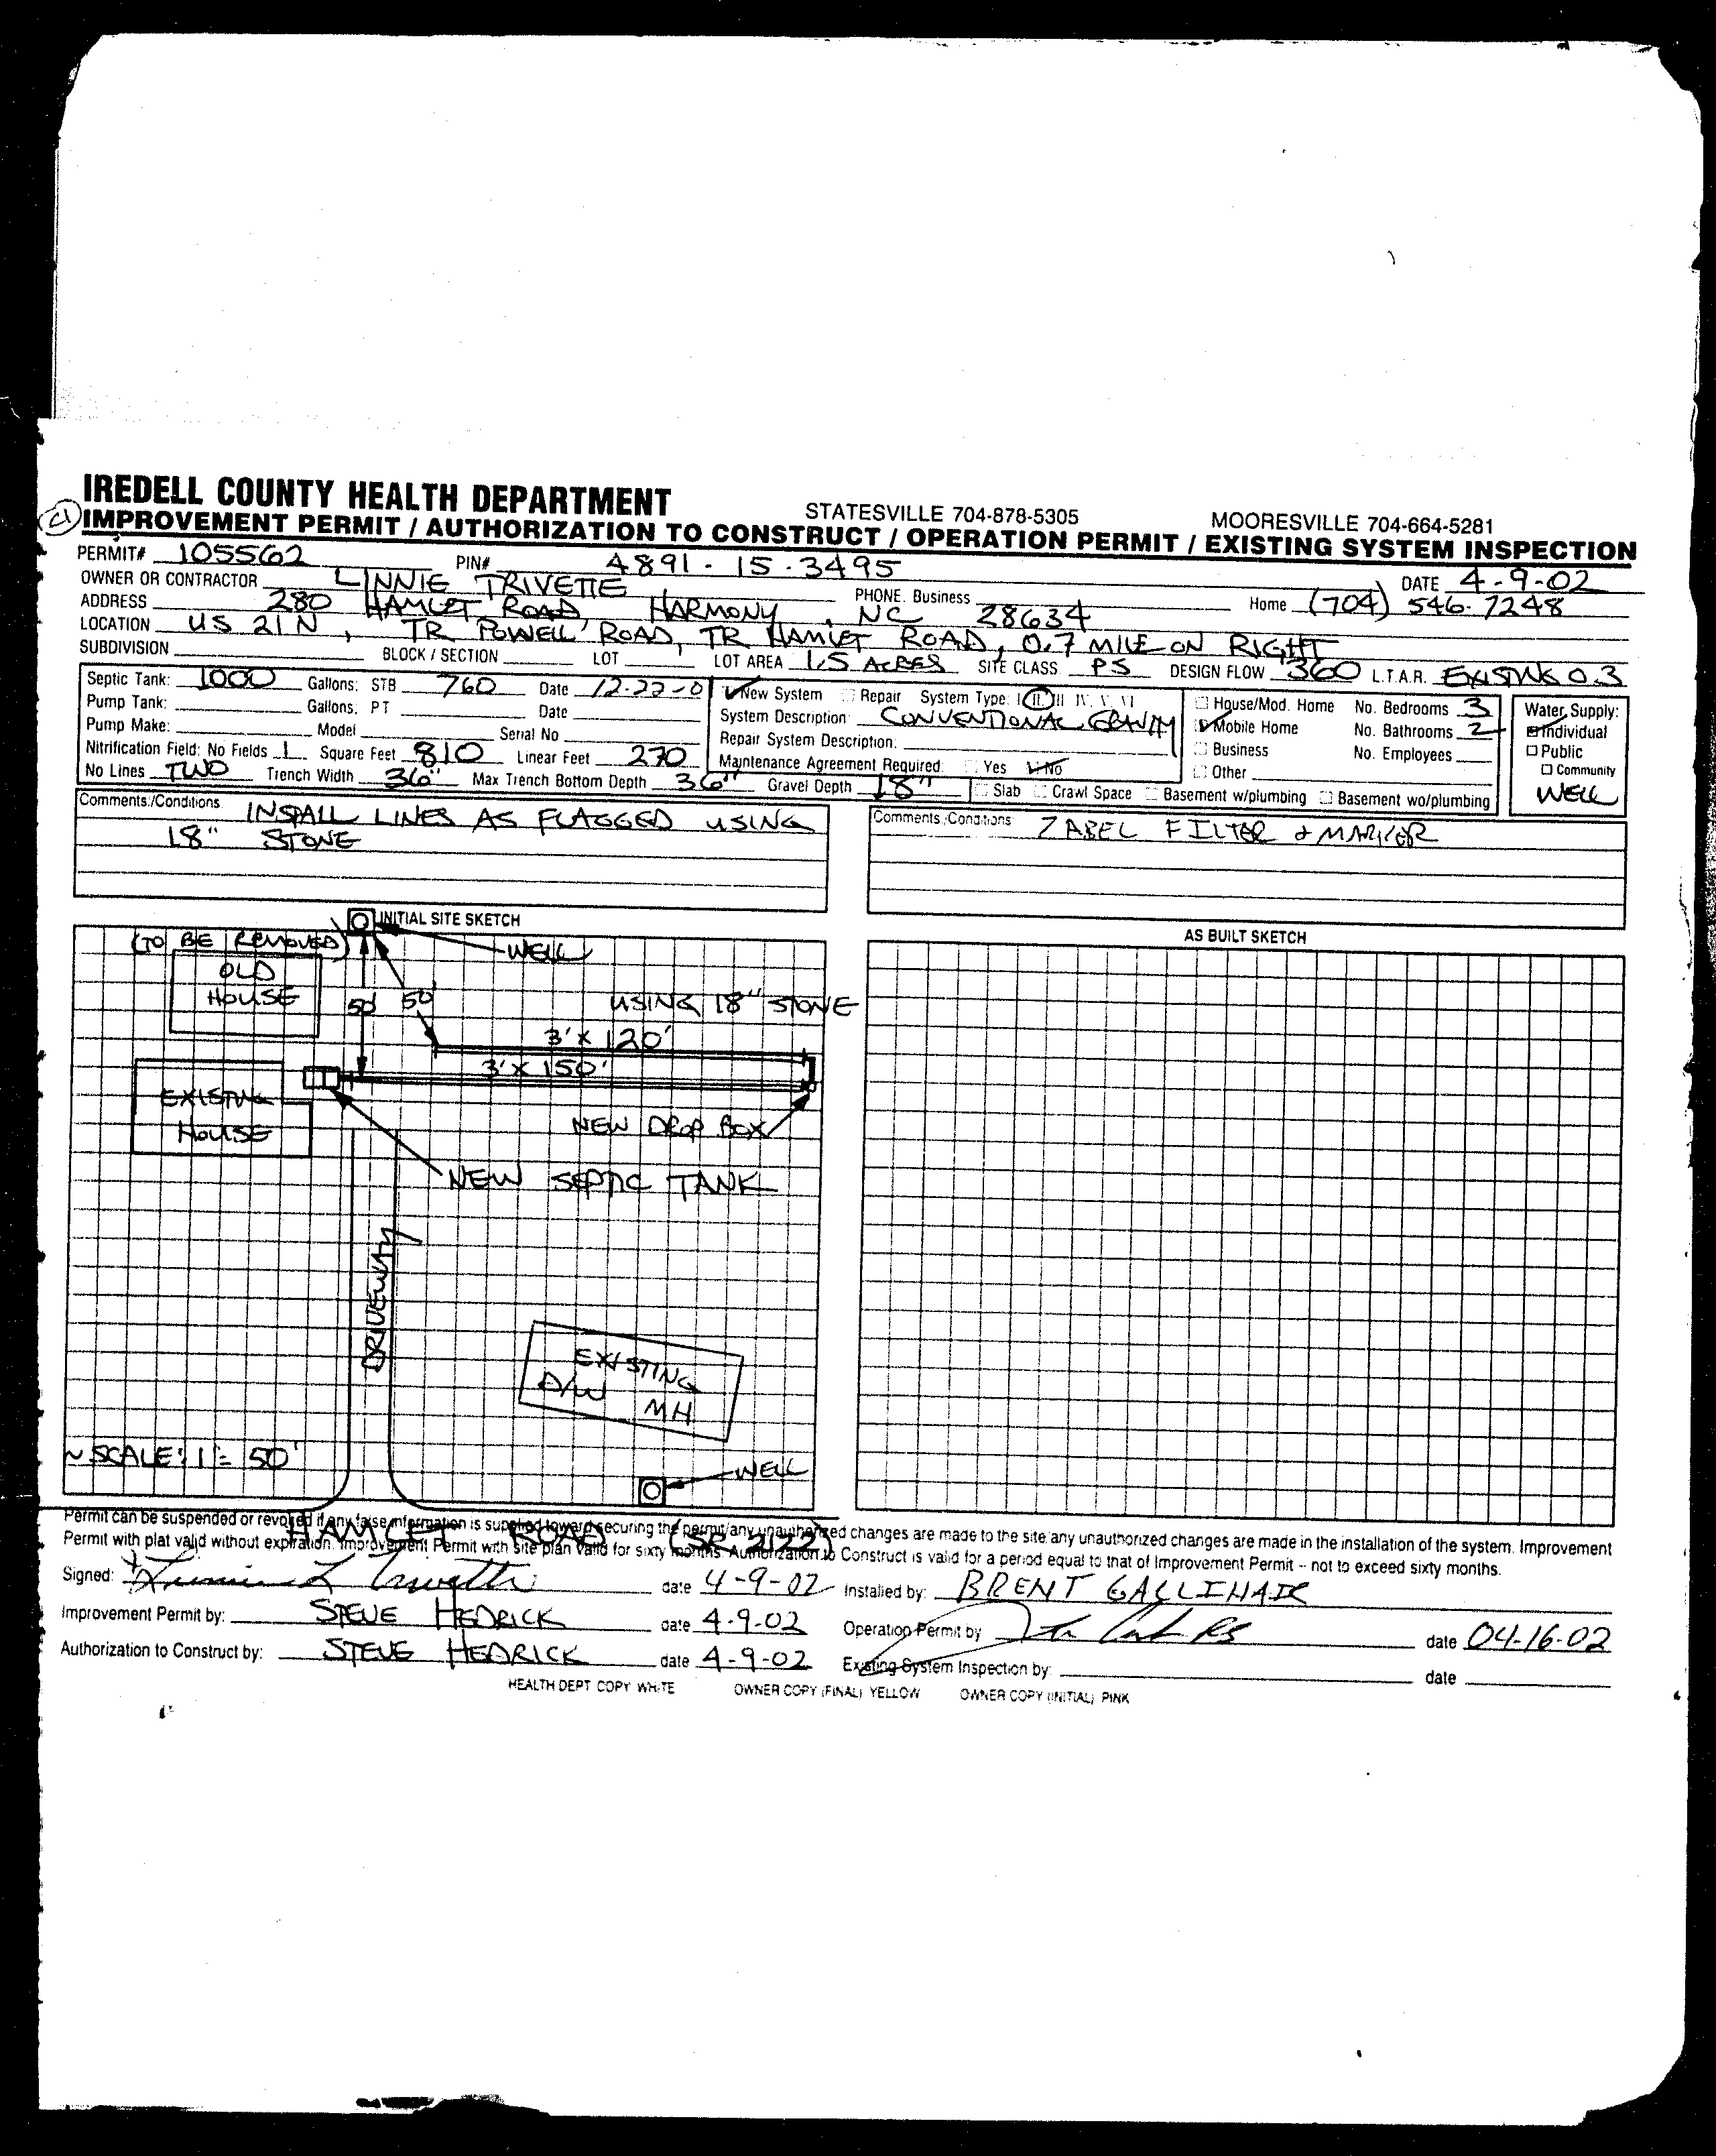 IREDELL COUNTY HEALTH DEPARTMENT STATESVILLE 704-878-5305 MOORESVILLE 704-664-5281
IMPROVEMENT PERMIT / AUTHORIZATION TO CONSTRUCT / OPERATION PERMIT / EXISTING SYSTEM INSPECTION
PERMIT# 105562 PIN# 4891-15-3495 DATE 4-9-02
OWNER OR CONTRACTOR LINNIE TRIVETTE PHONE: Business Home (704) 546-7248
ADDRESS 280 HAMLET ROAD, HARMONY, NC 28634
LOCATION US 21 N, TR POWELL ROAD, TR HAMLET ROAD, 0.7 MILE ON RIGHT
SUBDIVISION BLOCK / SECTION LOT LOT AREA 1.5 ACRES SITE CLASS PS DESIGN FLOW 360 L.T.A.R. EXISTING 0.3
Septic Tank: 1000 Gallons: STB 760 Date 12-22-0
Pump Tank: Gallons: PT Date
Pump Make: Model Serial No
Nitrification Field: No Fields 1 Square Feet 810 Linear Feet 270
No Lines TWO Trench Width 36" Max Trench Bottom Depth 36" Gravel Depth 18"
New System Repair System Type: I II III IV V VI
System Description: CONVENTIONAL GRAVITY
Repair System Description:
Maintenance Agreement Required: Yes No
Slab Crawl Space Basement w/plumbing Basement wo/plumbing
House/Mod. Home No. Bedrooms 3
Mobile Home No. Bathrooms 2
Business No. Employees
Other
Water Supply:
Individual
Public
Community
WELL
Comments/Conditions INSTALL LINES AS FLAGGED USING
18" STONE
Comments/Conditions ZABEL FILTER & MARKER
INITIAL SITE SKETCH
(TO BE REMOVED)
WELL
OLD
HOUSE
50' 50'
USING 18" STONE
3' X 120'
3' X 150'
EXISTING
HOUSE
NEW DROP BOX
NEW SEPTIC TANK
DRIVEWAY
EXISTING
D/W MH
~ SCALE: 1" = 50'
WELL
HAMLET ROAD (SR 2122)
AS BUILT SKETCH
Permit can be suspended or revoked if any false information is supplied toward securing the permit/any unauthorized changes are made to the site any unauthorized changes are made in the installation of the system. Improvement
Permit with plat valid without expiration. Improvement Permit with site plan valid for sixty months. Authorization to Construct is valid for a period equal to that of Improvement Permit -- not to exceed sixty months.
Signed: Linnie L Trivette date 4-9-02 Installed by: BRENT GALLIHAIR
Improvement Permit by: STEVE HEDRICK date 4-9-02 Operation Permit by RS date 04-16-02
Authorization to Construct by: STEVE HEDRICK date 4-9-02 Existing System Inspection by: date
HEALTH DEPT COPY WHITE OWNER COPY (FINAL) YELLOW OWNER COPY (INITIAL) PINK